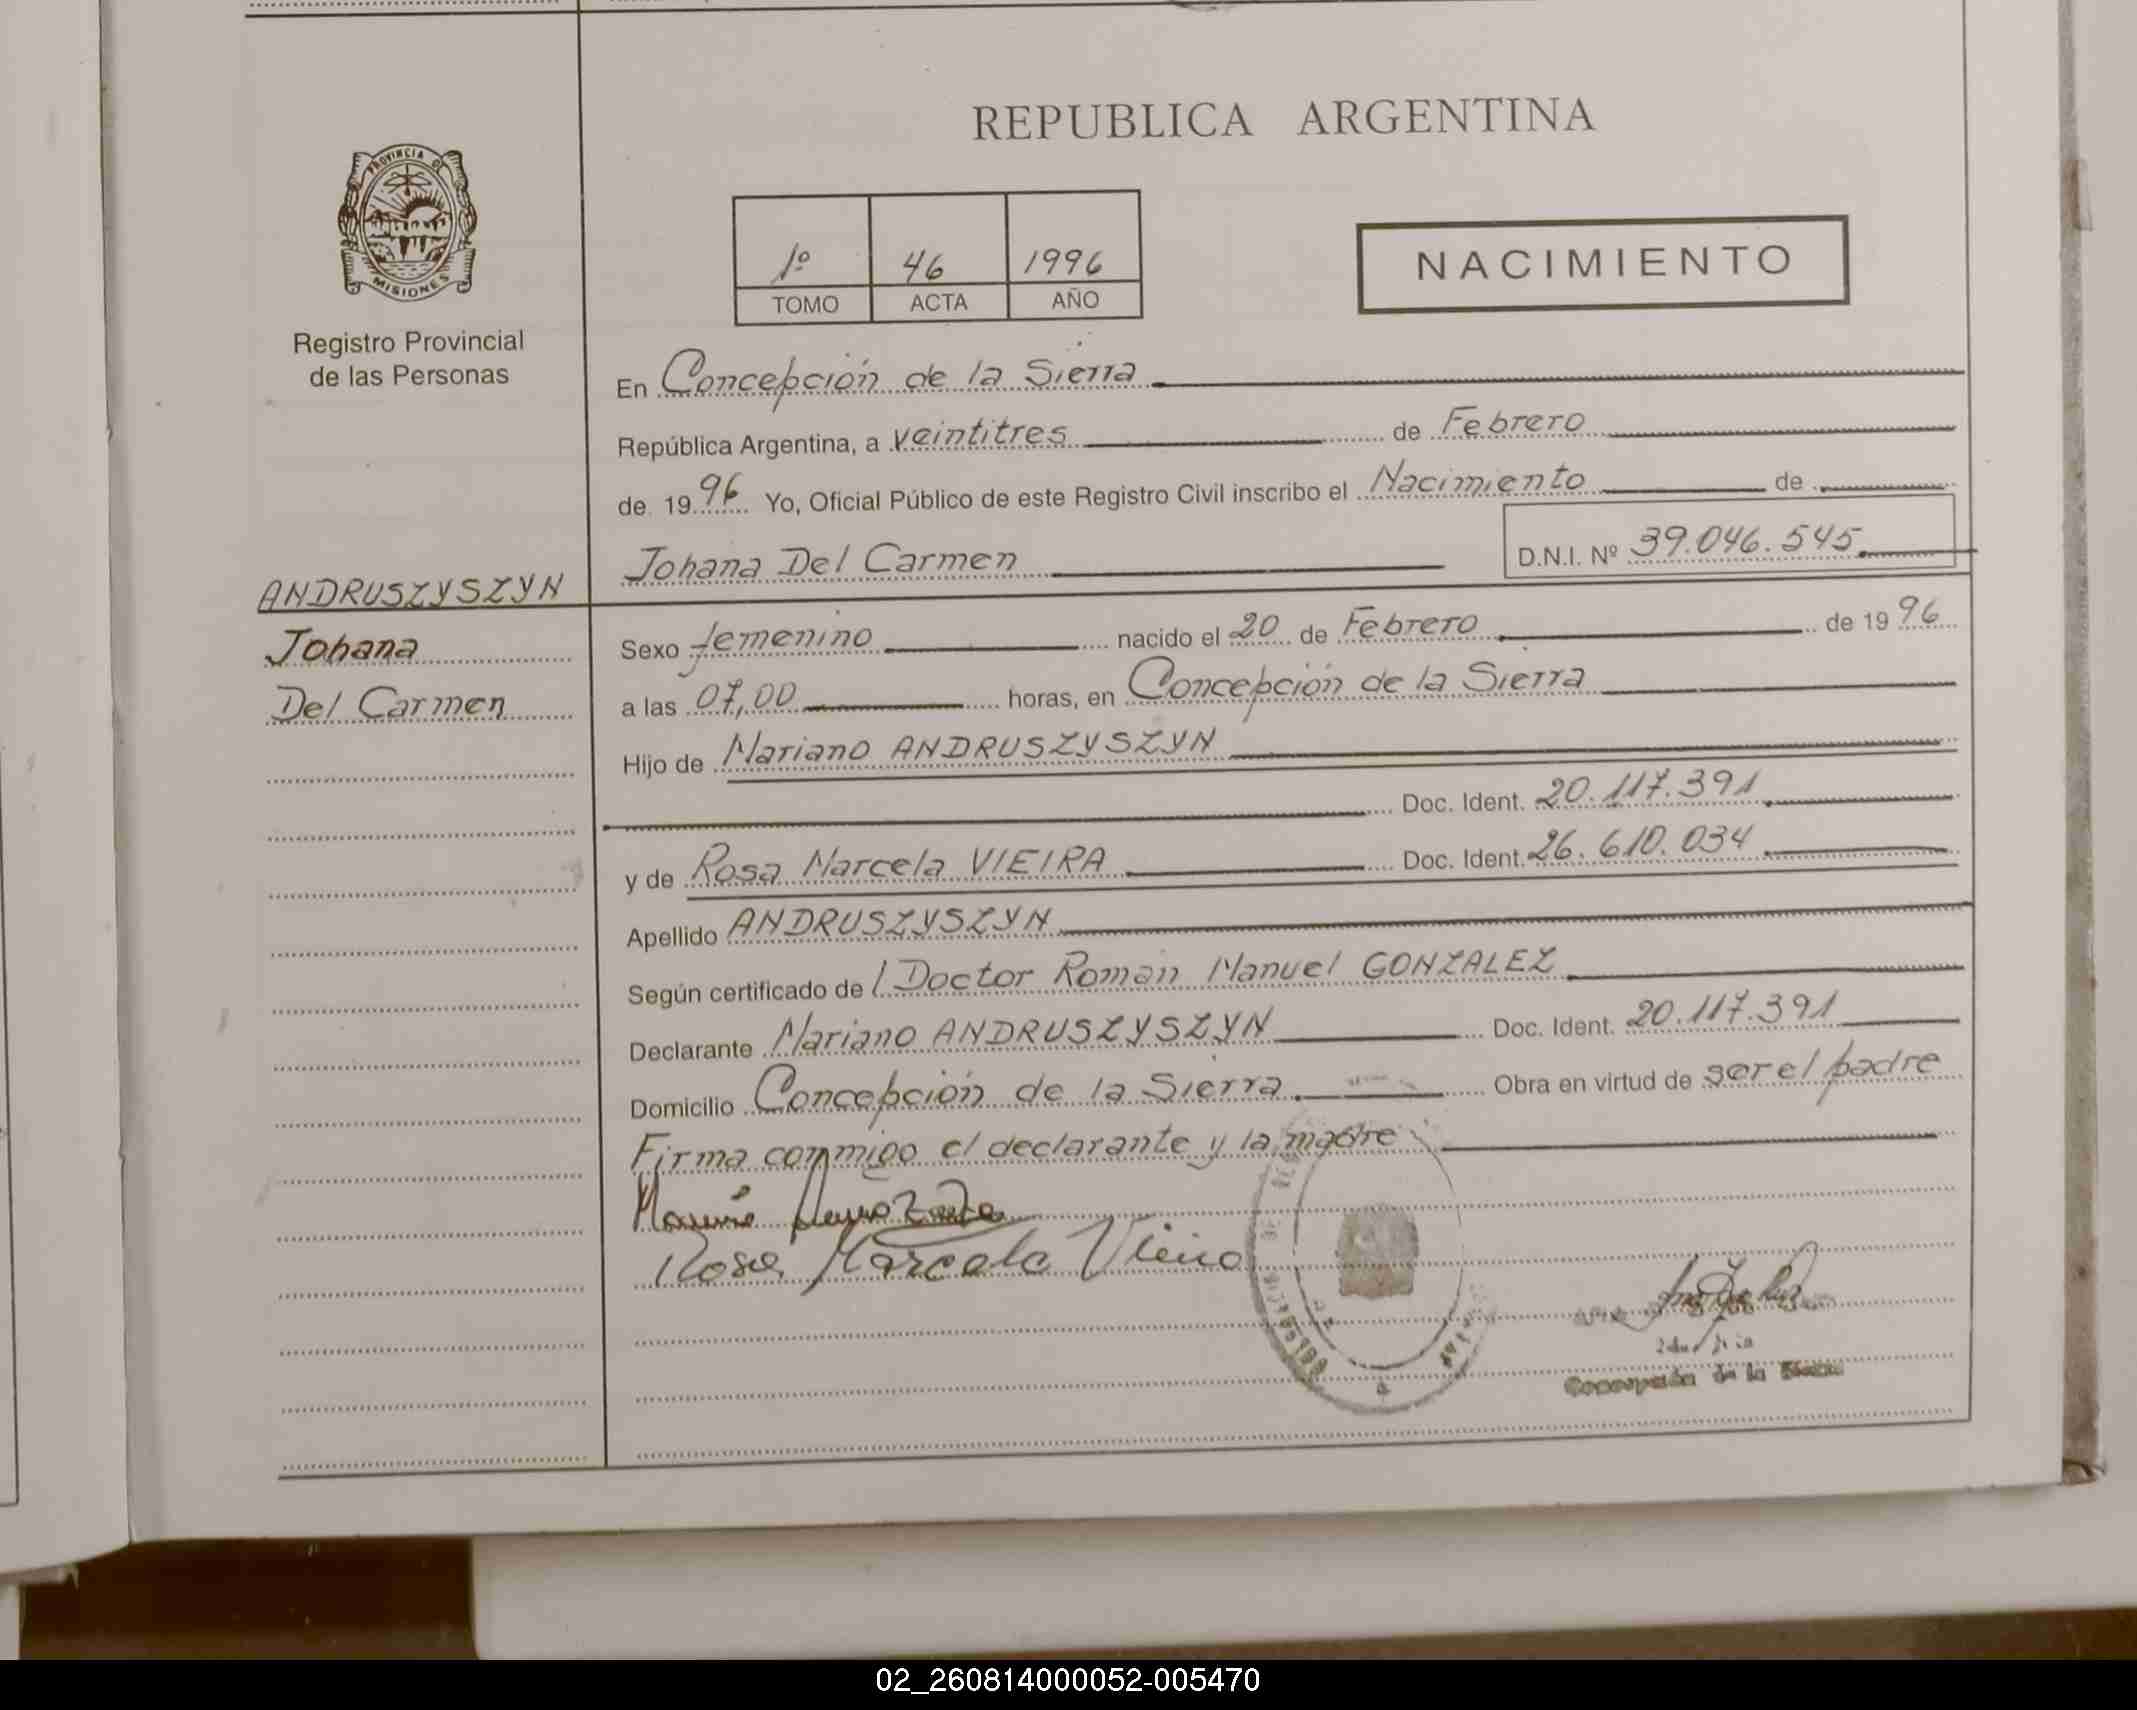 REPUBLICA ARGENTINA
PROVINCIA DE
MISIONES
Registro Provincial
de las Personas
1º 46 1996
TOMO ACTA AÑO
NACIMIENTO
En Concepción de la Sierra
República Argentina, a veintitres de Febrero
de 1996 Yo, Oficial Público de este Registro Civil inscribo el Nacimiento de
Johana Del Carmen D.N.I. Nº 39.046.545
ANDRUSZYSZYN
Johana
Del Carmen
Sexo femenino nacido el 20 de Febrero de 1996
a las 07,00 horas, en Concepción de la Sierra
Hijo de Mariano ANDRUSZYSZYN
Doc. Ident. 20.117.391
y de Rosa Marcela VIEIRA Doc. Ident. 26.610.034
Apellido ANDRUSZYSZYN
Según certificado de l Doctor Román Manuel GONZALEZ
Declarante Mariano ANDRUSZYSZYN Doc. Ident. 20.117.391
Domicilio Concepción de la Sierra Obra en virtud de ser el padre
Firma conmigo el declarante y la madre
Rosa Marcela Vieira
Concepción de la Sierra
02_260814000052-005470